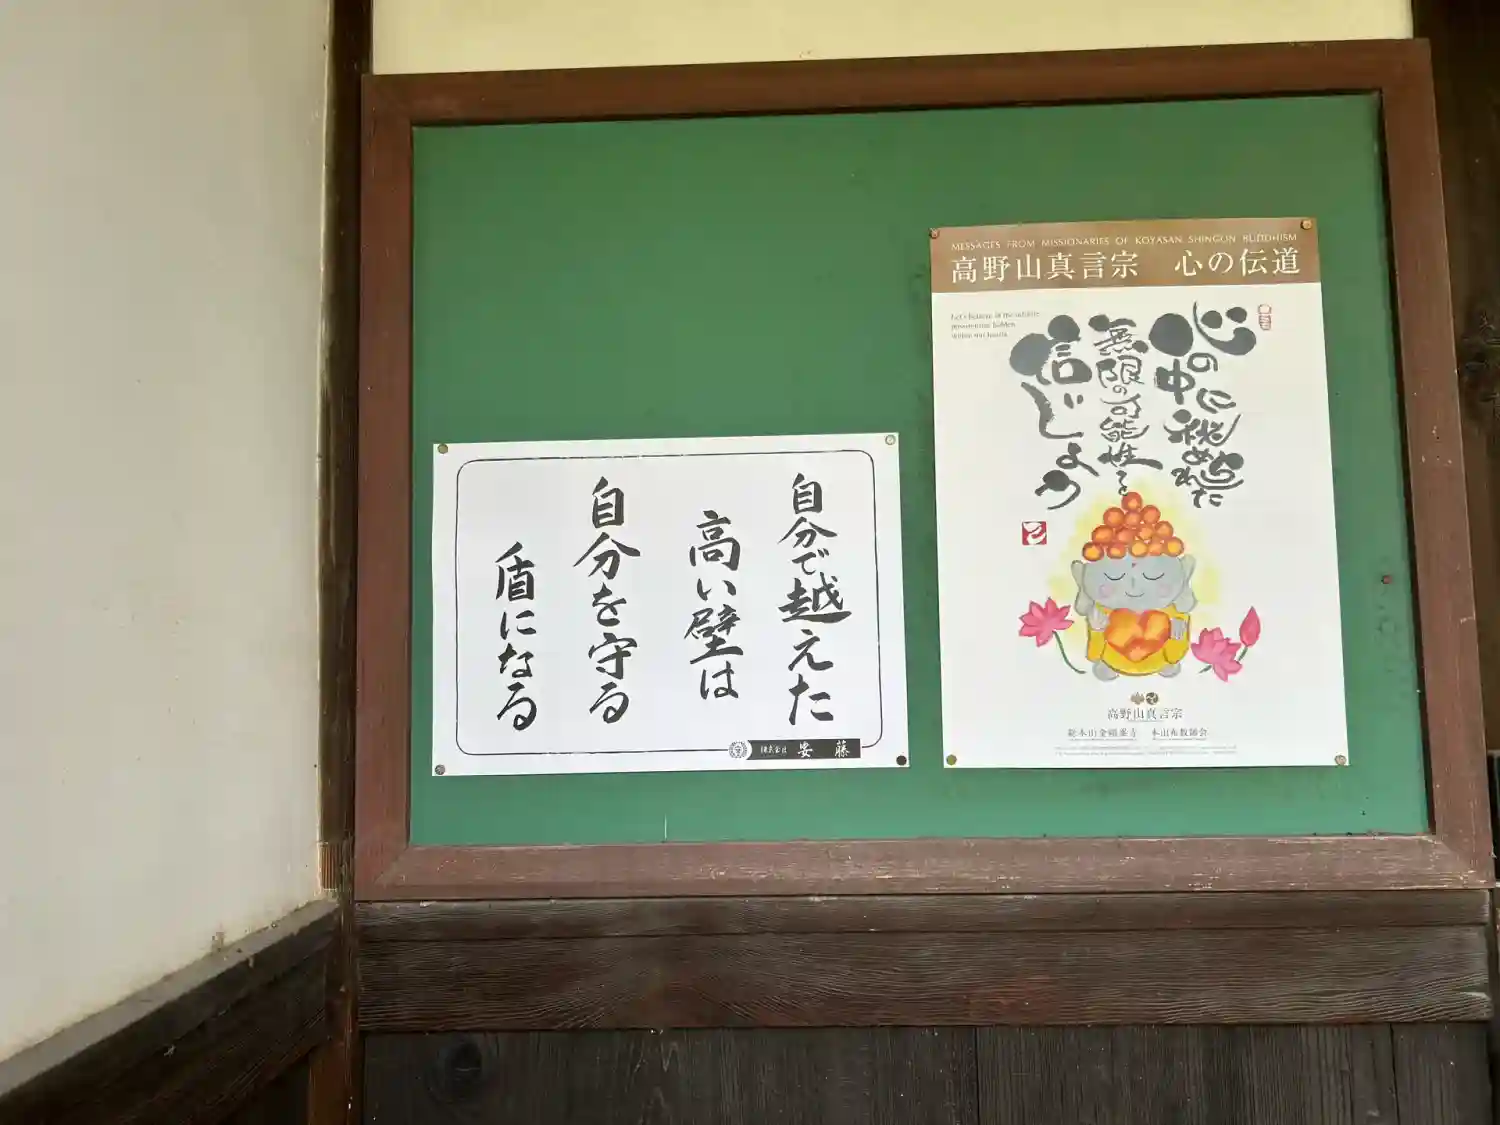 自分で越えた
高い壁は
自分を守る
盾になる
株式会社 安藤
MESSAGES FROM MISSIONARIES OF KOYASAN SHINGON BUDDHISM
高野山真言宗 心の伝道
Let's believe in the infinite
possibilities hidden
within our hearts.
心の中に秘められた
無限の可能性を
信じよう
高野山真言宗
総本山金剛峯寺 本山布教師会